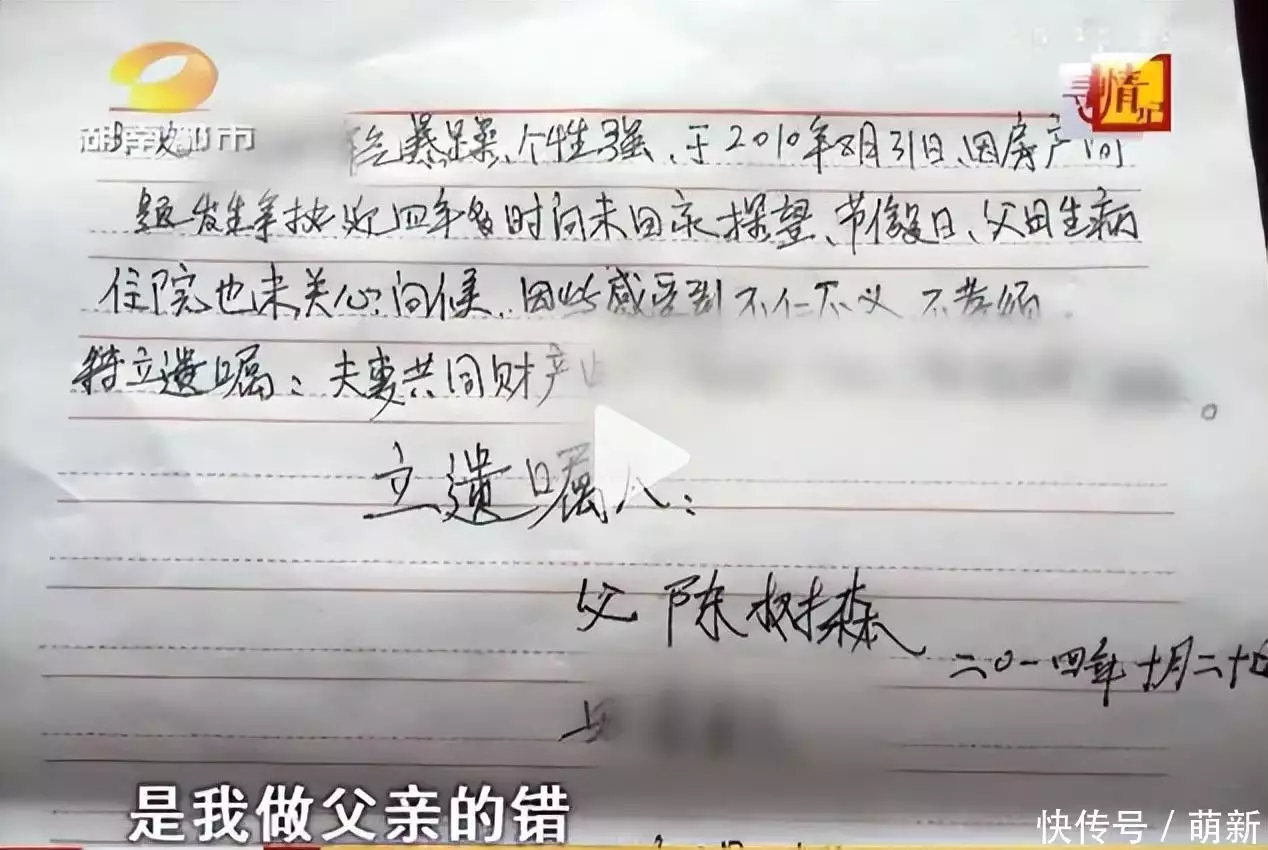 湖南都市
情
暴躁、个性强、于2010年8月31日、因房产问
题发生争执近四年多时间未回家探望、节假日、父母生病
住院也未关心问候、因此感受到不仁不义 不
特立遗嘱：夫妻共同财产
立遗嘱人：
父 陈树森
二〇一四年十月二十
母
是我做父亲的错
快传号 / 萌新